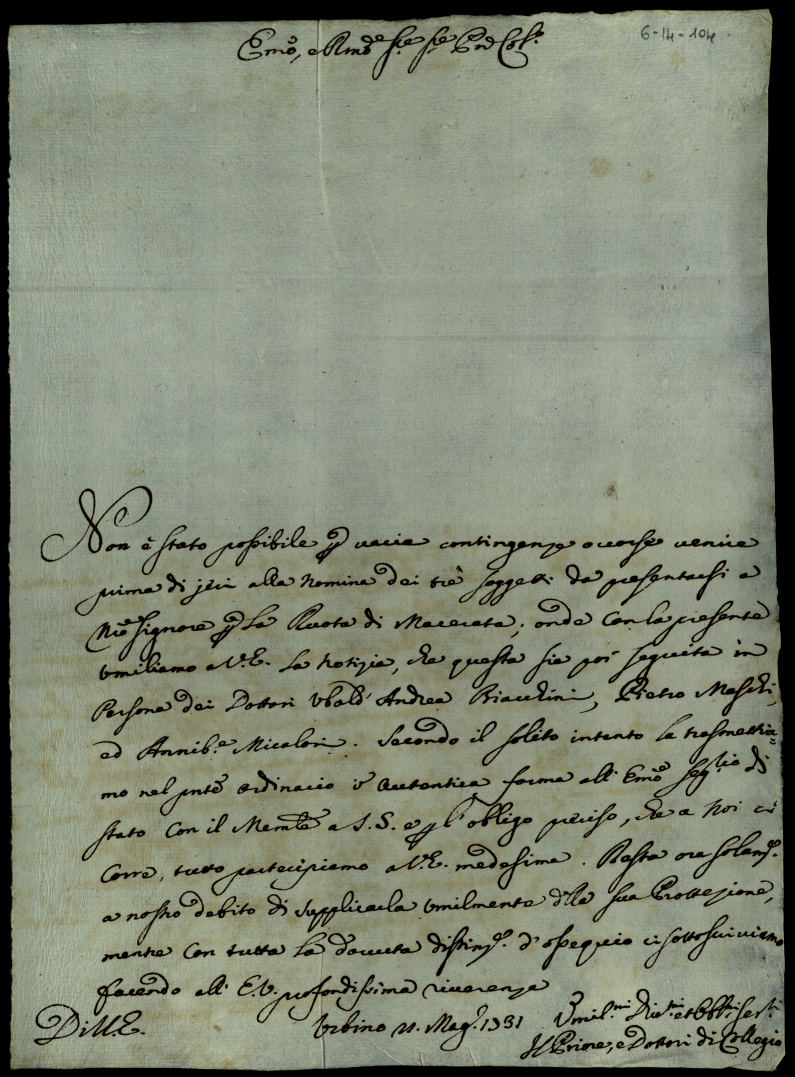 6-14-104
Emo, e Rmo Sre Sre Prõn Colmo
Non è stato possibile p varie contingenze occorse venire
prima di jeri alla nomina dei trè soggetti da presentarsi a
Nro Signore p La Ruota di Macerata; onde con la presente
umiliamo a V.E. La notizia, che questa sia poi seguita in
Persona dei Dottori Ubaldo Andrea Biacchini, Pietro Maschi,
ed Annib.e Micalori. Secondo il solito intanto la trasmettia=
mo nel pnte ordinario in autentica forma all' Emo Segrio di
stato con il Memle a S.S. e p l'obligo preciso, che a noi in
corre, tutto partecipiamo a V.E. medesima. Resta ora solam.e
a nostro debito di supplicarla umilmente della sua Protezione,
mentre con tutta La dovuta distinz.e d'ossequio ci sottoscriviamo
facendo all' E.V. profondissima riverenza
Di V.E.
Urbino 21. Mag.o 1731
Umil.mi Div.mi et Obb.mi Ser.i
Il Priore, e Dottori di Collegio